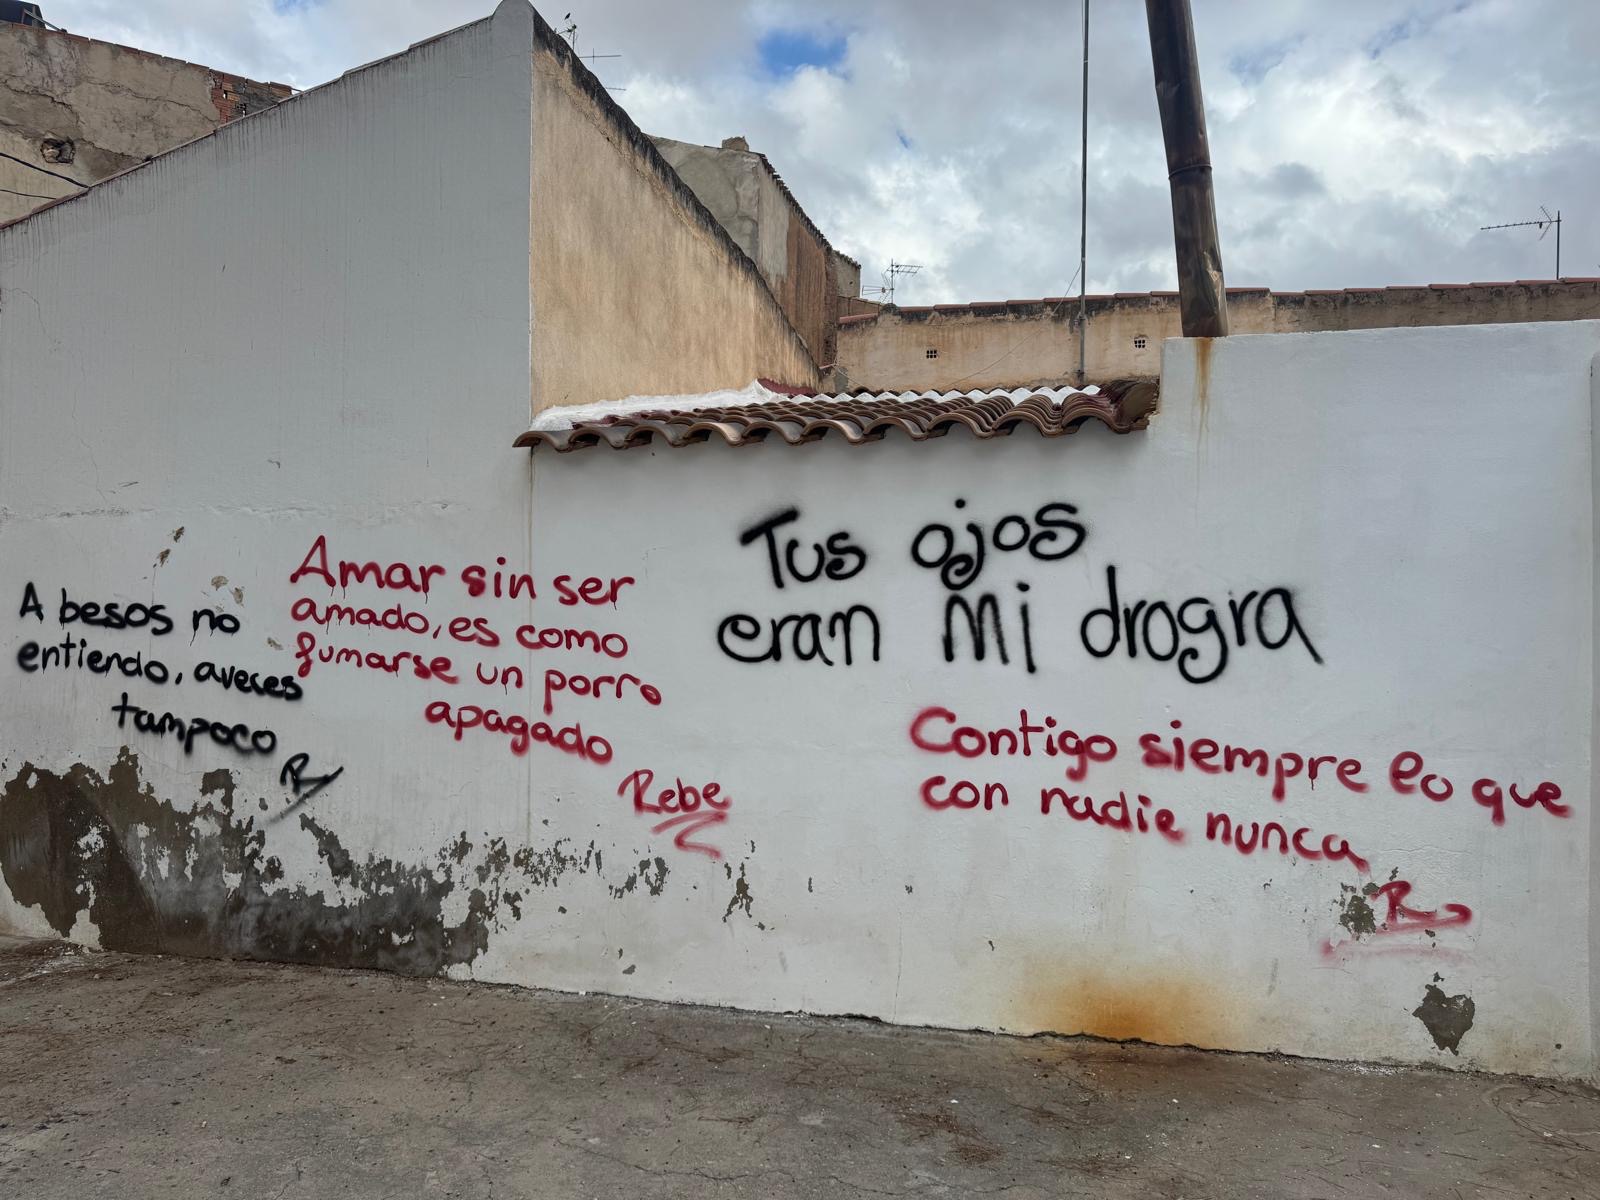 A besos no
entiendo, aveces
tampoco
R
Amar sin ser
amado, es como
fumarse un porro
apagado
Rebe
Tus ojos
eran mi drogra
Contigo siempre lo que
con nadie nunca
R